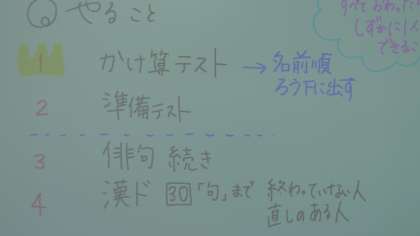 やること
すべておわった
しずかに1人
できるこ
1 かけ算テスト → 名前順
ろう下に出す
2 準備テスト
3 俳句 続き
4 漢ド 30「句」まで 終わっていない人
直しのある人